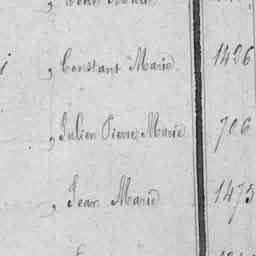 , Constant Marie. 1426
, Julien Pierre Marie 706
, Jean Marie 1475